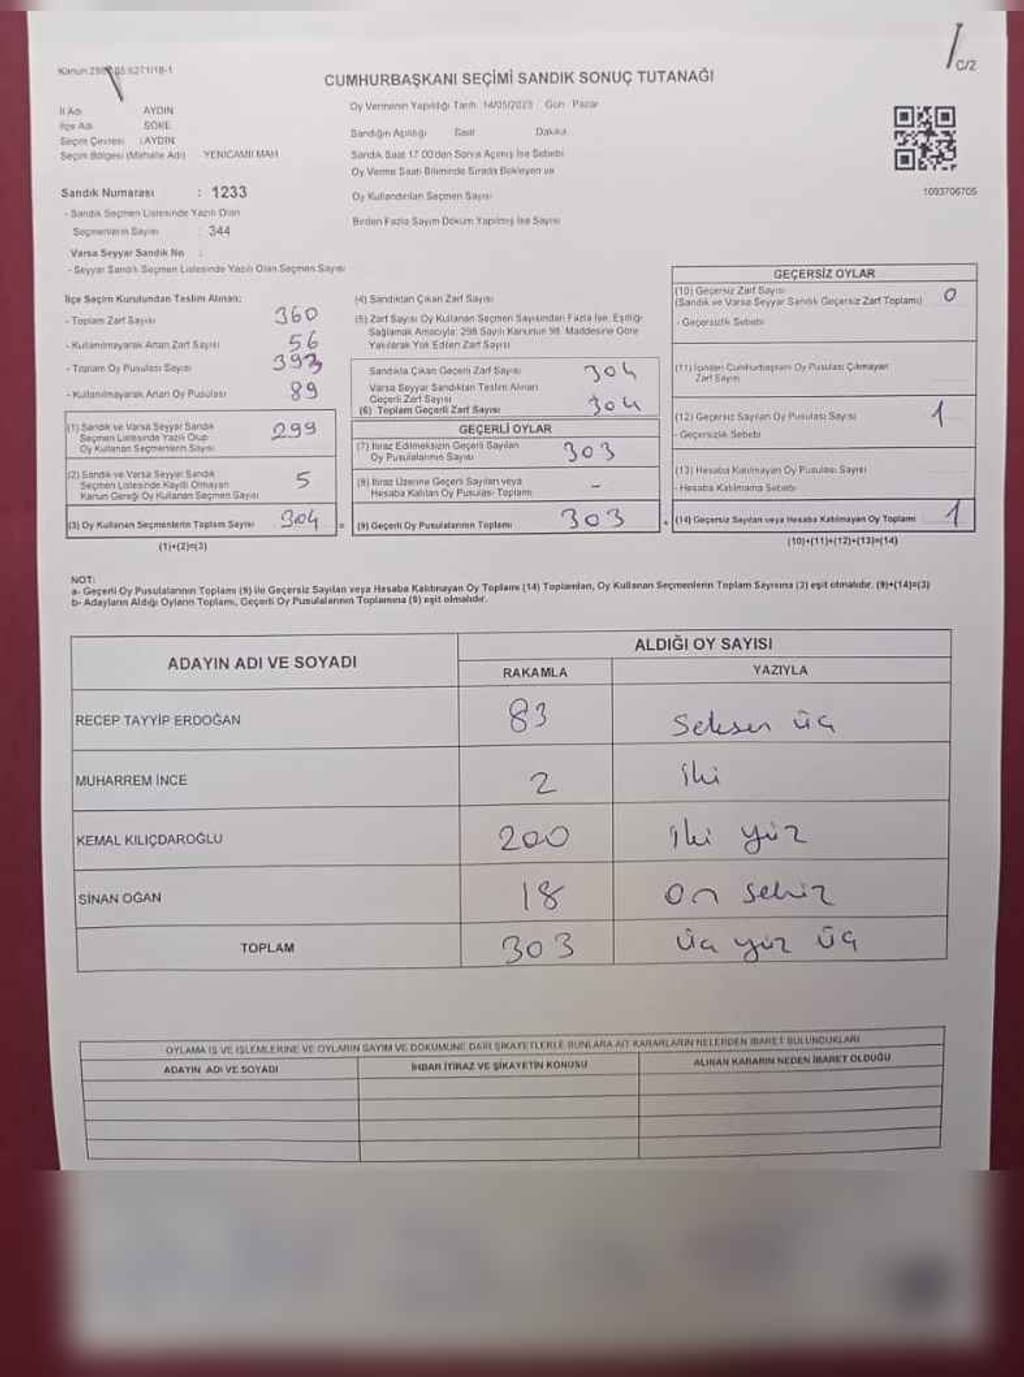 C/2
CUMHURBAŞKANI SEÇİMİ SANDIK SONUÇ TUTANAĞI
Oy Vermenin Yapıldığı Tarih: 14/05/2023 Gün: Pazar
İl Adı AYDIN
İlçe Adı SÖKE
Seçim Çevresi : AYDIN
Seçim Bölgesi (Mahalle Adı) YENİCAMİİ MAH
Sandığın Açıldığı Saat Dakika
Sandık Saat 17.00'den Sonra Açılmış İse Sebebi
Oy Verme Saati Bitiminde Sırada Bekleyen ve
Oy Kullandırılan Seçmen Sayısı
Birden Fazla Sayım Döküm Yapılmış İse Sayısı
1093706705
Sandık Numarası : 1233
- Sandık Seçmen Listesinde Yazılı Olan
Seçmenlerin Sayısı : 344
Varsa Seyyar Sandık No :
- Seyyar Sandık Seçmen Listesinde Yazılı Olan Seçmen Sayısı
İlçe Seçim Kurulundan Teslim Alınan:
- Toplam Zarf Sayısı 360
- Kullanılmayarak Artan Zarf Sayısı 56
- Toplam Oy Pusulası Sayısı 393
- Kullanılmayarak Artan Oy Pusulası 89
(1) Sandık ve Varsa Seyyar Sandık
Seçmen Listesinde Yazılı Olup
Oy Kullanan Seçmenlerin Sayısı 299
(2) Sandık ve Varsa Seyyar Sandık
Seçmen Listesinde Kayıtlı Olmayan
Kanun Gereği Oy Kullanan Seçmen Sayısı 5
(3) Oy Kullanan Seçmenlerin Toplam Sayısı 304
(1)+(2)=(3)
(4) Sandıktan Çıkan Zarf Sayısı
(5) Zarf Sayısı Oy Kullanan Seçmen Sayısından Fazla İse, Eşitliği
Sağlamak Amacıyla; 298 Sayılı Kanunun 98. Maddesine Göre
Yakılarak Yok Edilen Zarf Sayısı
Sandıkta Çıkan Geçerli Zarf Sayısı 304
Varsa Seyyar Sandıktan Teslim Alınan
Geçerli Zarf Sayısı
(6) Toplam Geçerli Zarf Sayısı 304
GEÇERLİ OYLAR
(7) İtiraz Edilmeksizin Geçerli Sayılan
Oy Pusulalarının Sayısı 303
(8) İtiraz Üzerine Geçerli Sayılan veya
Hesaba Katılan Oy Pusulası Toplamı -
= (9) Geçerli Oy Pusulalarının Toplamı 303
GEÇERSİZ OYLAR
(10) Geçersiz Zarf Sayısı
(Sandık ve Varsa Seyyar Sandık Geçersiz Zarf Toplamı) 0
- Geçersizlik Sebebi
(11) İçinden Cumhurbaşkanı Oy Pusulası Çıkmayan
Zarf Sayısı
(12) Geçersiz Sayılan Oy Pusulası Sayısı 1
- Geçersizlik Sebebi
(13) Hesaba Katılmayan Oy Pusulası Sayısı
- Hesaba Katılmama Sebebi
+ (14) Geçersiz Sayılan veya Hesaba Katılmayan Oy Toplamı 1
(10)+(11)+(12)+(13)=(14)
NOT:
a- Geçerli Oy Pusulalarının Toplamı (9) ile Geçersiz Sayılan veya Hesaba Katılmayan Oy Toplamı (14) Toplamları, Oy Kullanan Seçmenlerin Toplam Sayısına (3) eşit olmalıdır. (9)+(14)=(3)
b- Adayların Aldığı Oyların Toplamı, Geçerli Oy Pusulalarının Toplamına (9) eşit olmalıdır.
ADAYIN ADI VE SOYADI
ALDIĞI OY SAYISI
RAKAMLA YAZIYLA
RECEP TAYYİP ERDOĞAN 83 Seksen üç
MUHARREM İNCE 2 iki
KEMAL KILIÇDAROĞLU 200 iki yüz
SİNAN OĞAN 18 on sekiz
TOPLAM 303 üç yüz üç
OYLAMA İŞ VE İŞLEMLERİNE VE OYLARIN SAYIM VE DÖKÜMÜNE DAİR ŞİKAYETLERLE BUNLARA AİT KARARLARIN NELERDEN İBARET BULUNDUKLARI
ADAYIN ADI VE SOYADI İHBAR İTİRAZ VE ŞİKAYETİN KONUSU ALINAN KARARIN NEDEN İBARET OLDUĞU